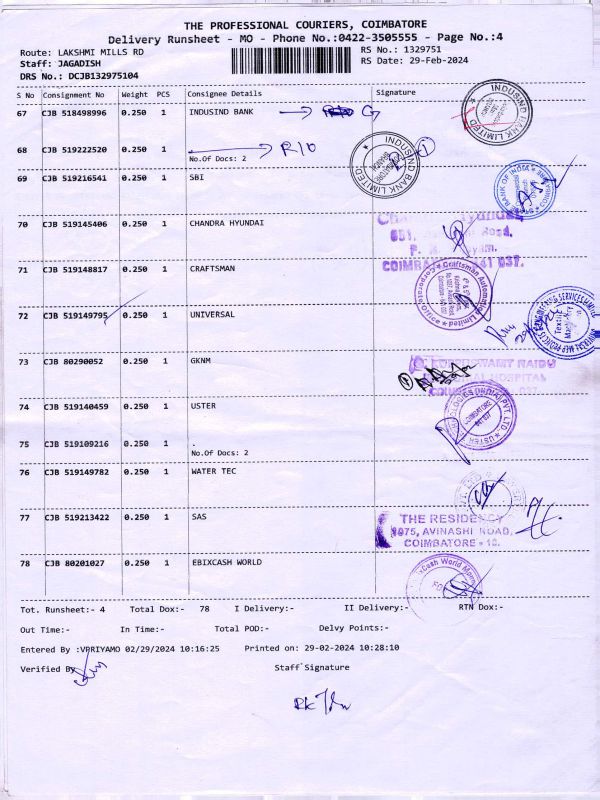 THE PROFESSIONAL COURIERS, COIMBATORE
Delivery Runsheet - MO - Phone No.:0422-3505555 - Page No.:4
Route: LAKSHMI MILLS RD
RS No.: 1329751
Staff: JAGADISH
RS Date: 29-Feb-2024
DRS No.: DCJB132975104
S No Consignment No Weight PCS Consignee Details Signature
67 CJB 518498996 0.250 1 INDUSIND BANK
INDUSIND BANK LIMITED
68 CJB 519222520 0.250 1 R/O
No.Of Docs: 2
INDUSIND BANK LIMITED
69 CJB 519216541 0.250 1 SBI
BANK OF INDIA
70 CJB 519145406 0.250 1 CHANDRA HYUNDAI
71 CJB 519148817 0.250 1 CRAFTSMAN
Craftsman Automation Limited
Corporate Office
72 CJB 519149795 0.250 1 UNIVERSAL
73 CJB 80290052 1 GKNM
74 CJB 519140459 0.250 1 USTER
COIMBATORE
USTER
75 CJB 519109216 0.250 1 .
No.Of Docs: 2
76 CJB 519149782 0.250 1 WATER TEC
77 CJB 519213422 0.250 1 SAS
THE RESIDENCY
1075, AVINASHI ROAD,
COIMBATORE - 18.
78 CJB 80201027 0.250 1 EBIXCASH WORLD
Tot. Runsheet:- 4 Total Dox:- 78 I Delivery:- II Delivery:- RTN Dox:-
Out Time:- In Time:- Total POD:- Delvy Points:-
Entered By :VPRIYAMO 02/29/2024 10:16:25 Printed on: 29-02-2024 10:28:10
Verified By
Staff Signature